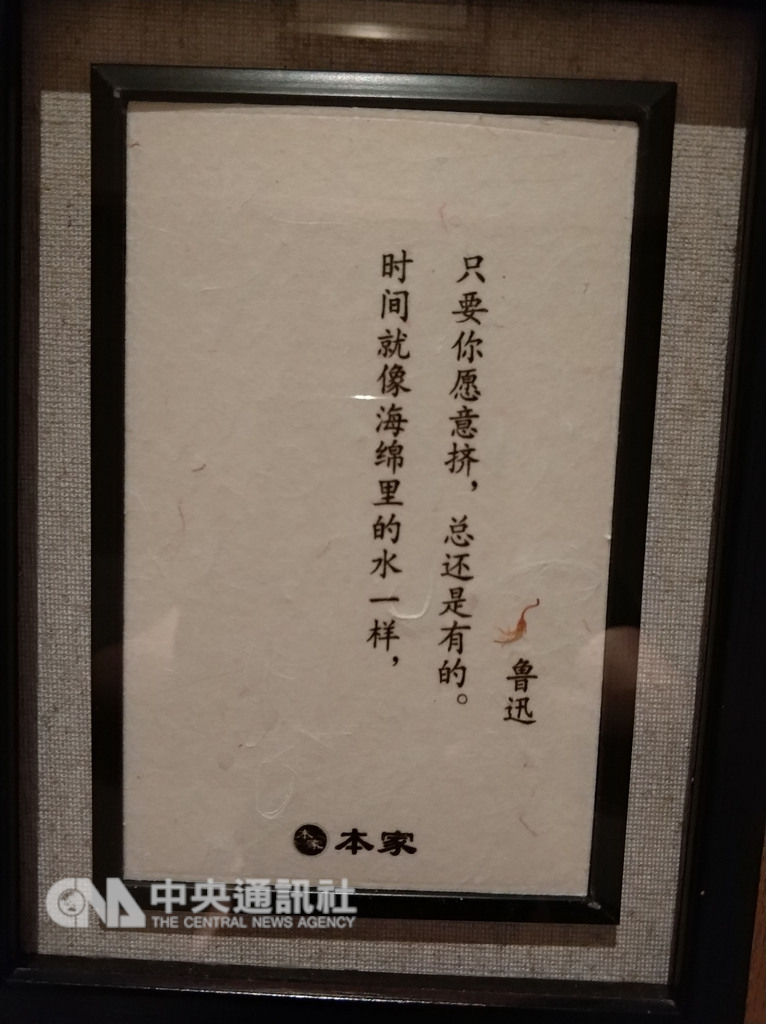 时间就像海绵里的水一样，
只要你愿意挤，总还是有的。
鲁迅
本家
本家
中央通訊社
THE CENTRAL NEWS AGENCY